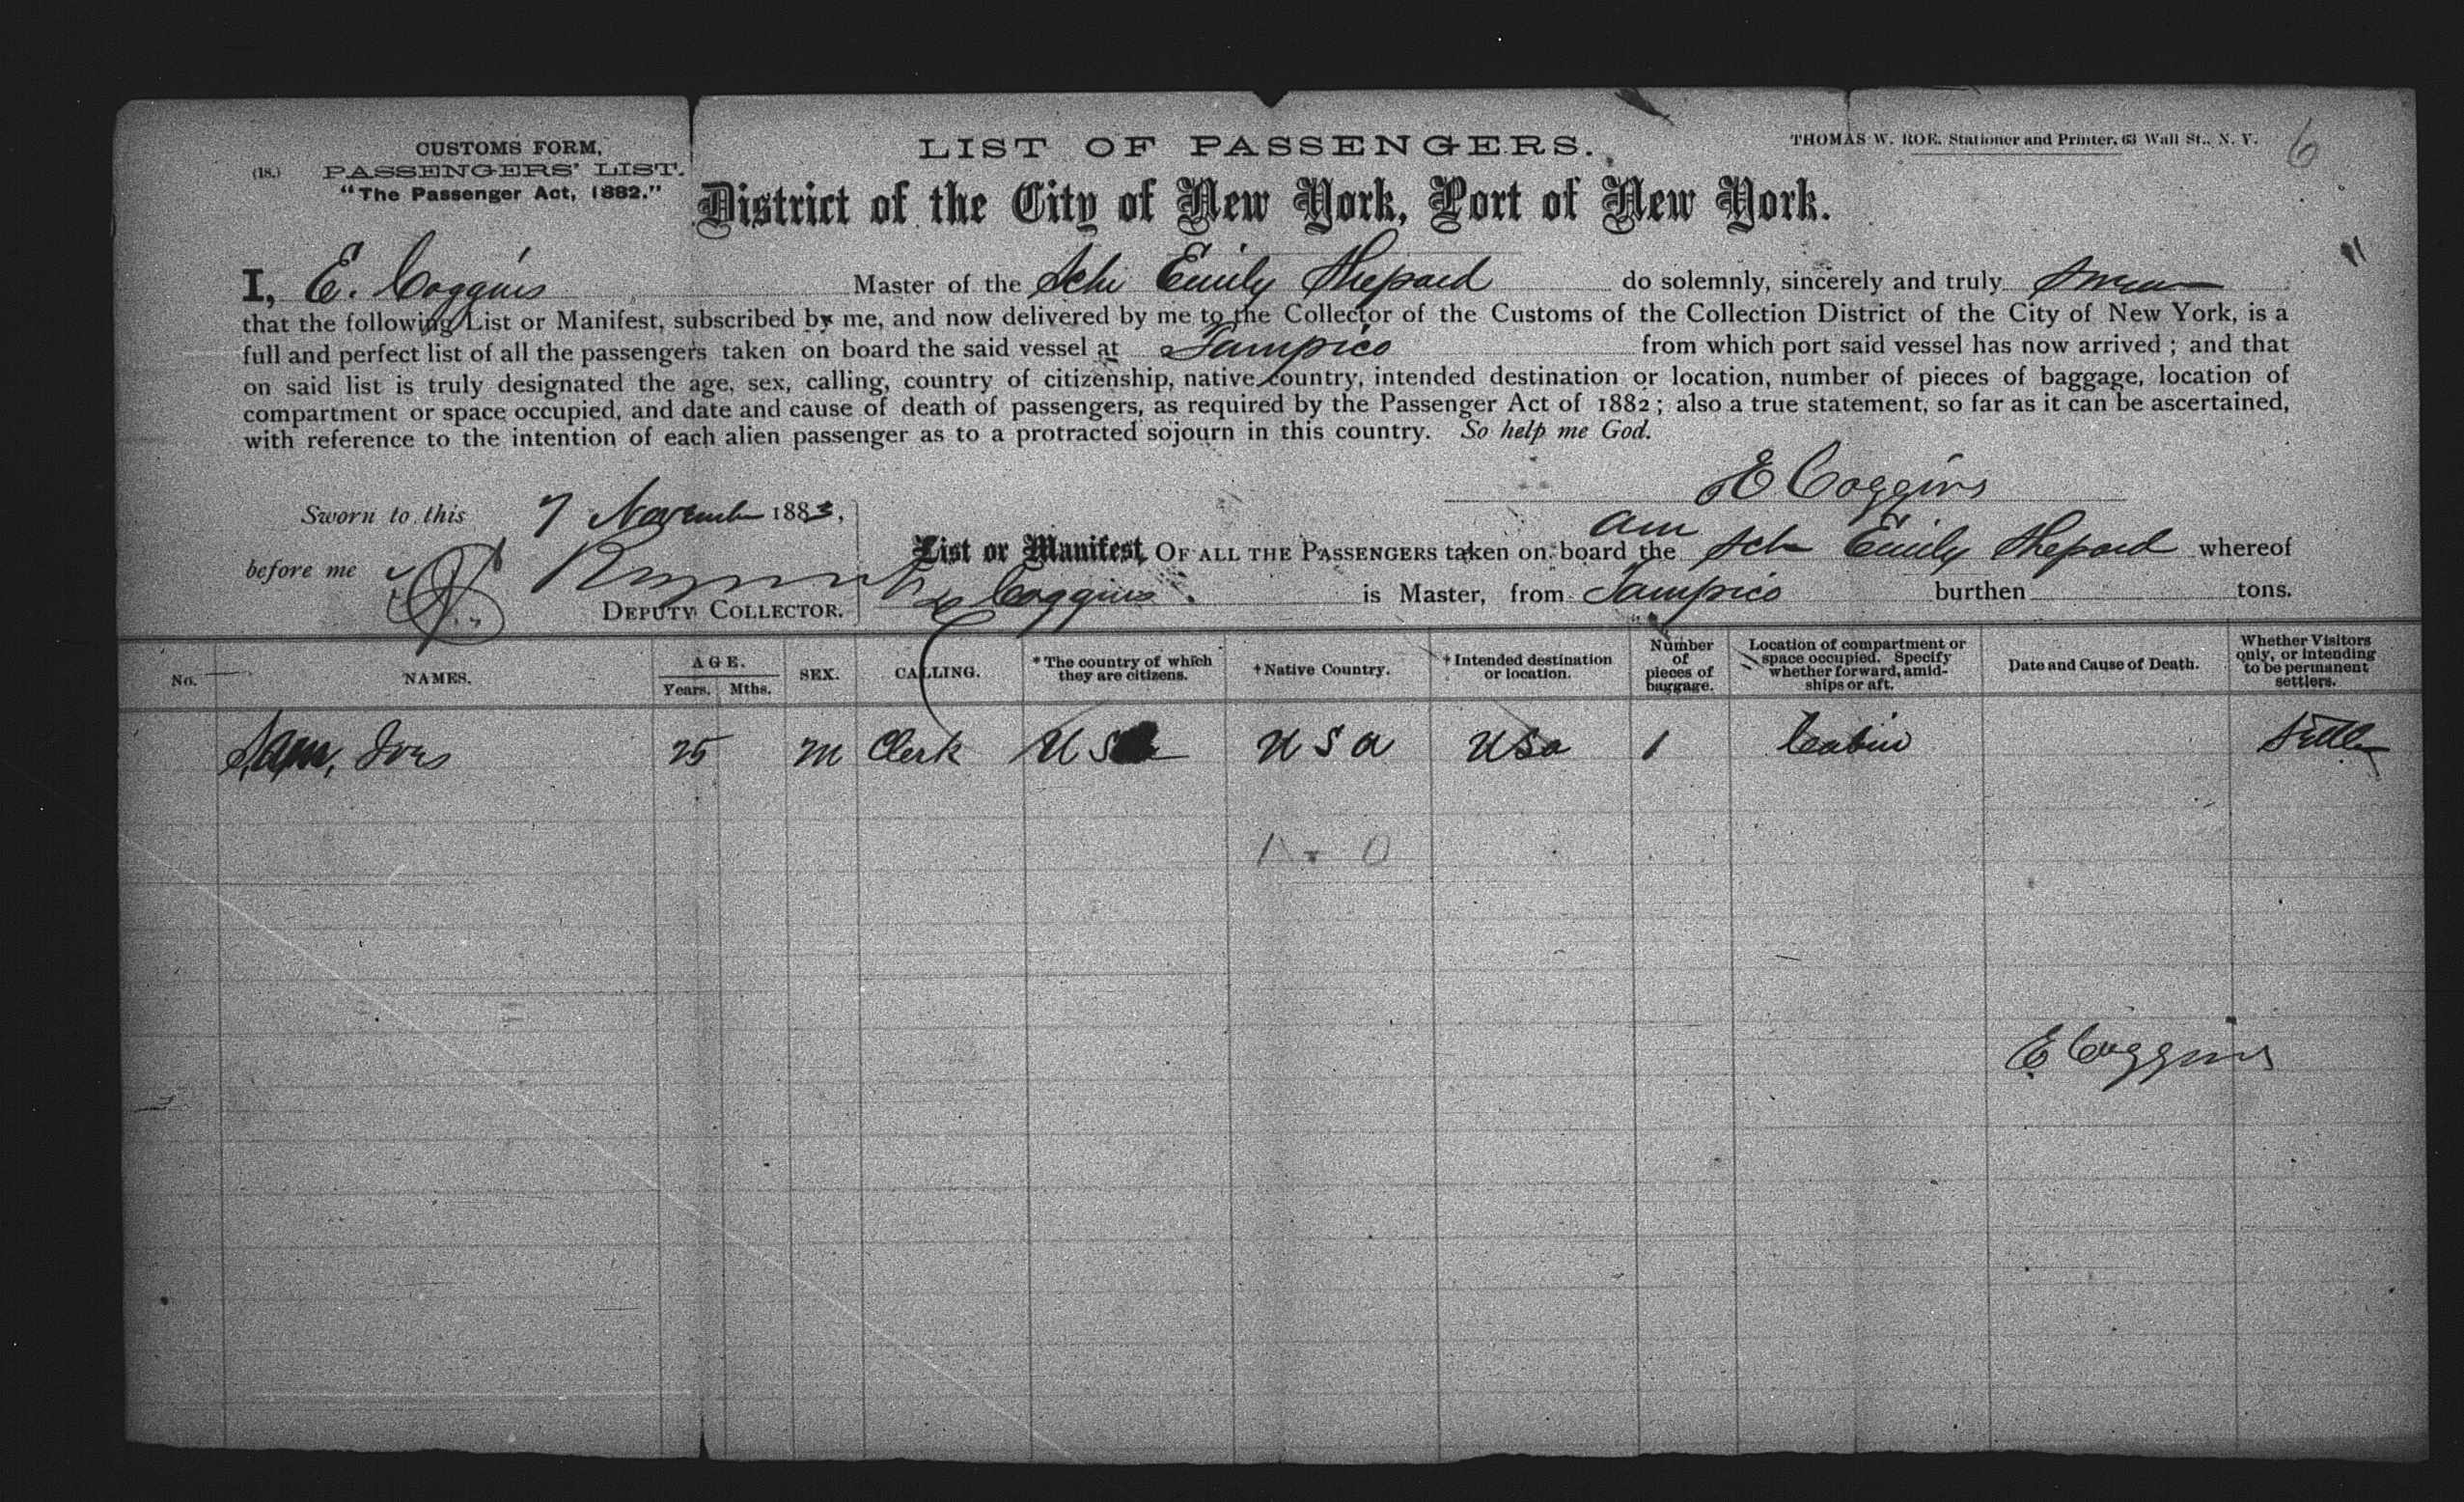 CUSTOMS FORM,
(18.) PASSENGERS' LIST.
"The Passenger Act, 1882."
LIST OF PASSENGERS.
THOMAS W. ROE, Stationer and Printer, 63 Wall St., N. Y.
6
District of the City of New York, Port of New York.
I, E. Coggins Master of the Schr Emily Shepard do solemnly, sincerely and truly swear
that the following List or Manifest, subscribed by me, and now delivered by me to the Collector of the Customs of the Collection District of the City of New York, is a
full and perfect list of all the passengers taken on board the said vessel at Tampico from which port said vessel has now arrived ; and that
on said list is truly designated the age, sex, calling, country of citizenship, native country, intended destination or location, number of pieces of baggage, location of
compartment or space occupied, and date and cause of death of passengers, as required by the Passenger Act of 1882 ; also a true statement, so far as it can be ascertained,
with reference to the intention of each alien passenger as to a protracted sojourn in this country. So help me God.
E Coggins
Sworn to this 7 November 1883,
before me
DEPUTY COLLECTOR.
am
List or Manifest OF ALL THE PASSENGERS taken on board the Sch Emily Shepard whereof
E Coggins is Master, from Tampico burthen tons.
No. NAMES. AGE. Years. Mths. SEX. CALLING. *The country of which they are citizens. †Native Country. †Intended destination or location. Number of pieces of baggage. Location of compartment or space occupied. Specify whether forward, amidships or aft. Date and Cause of Death. Whether Visitors only, or intending to be permanent settlers.
Sam, Ives 25 M Clerk USA USA USa 1 Cabin Settler
1 - 0
E Coggins